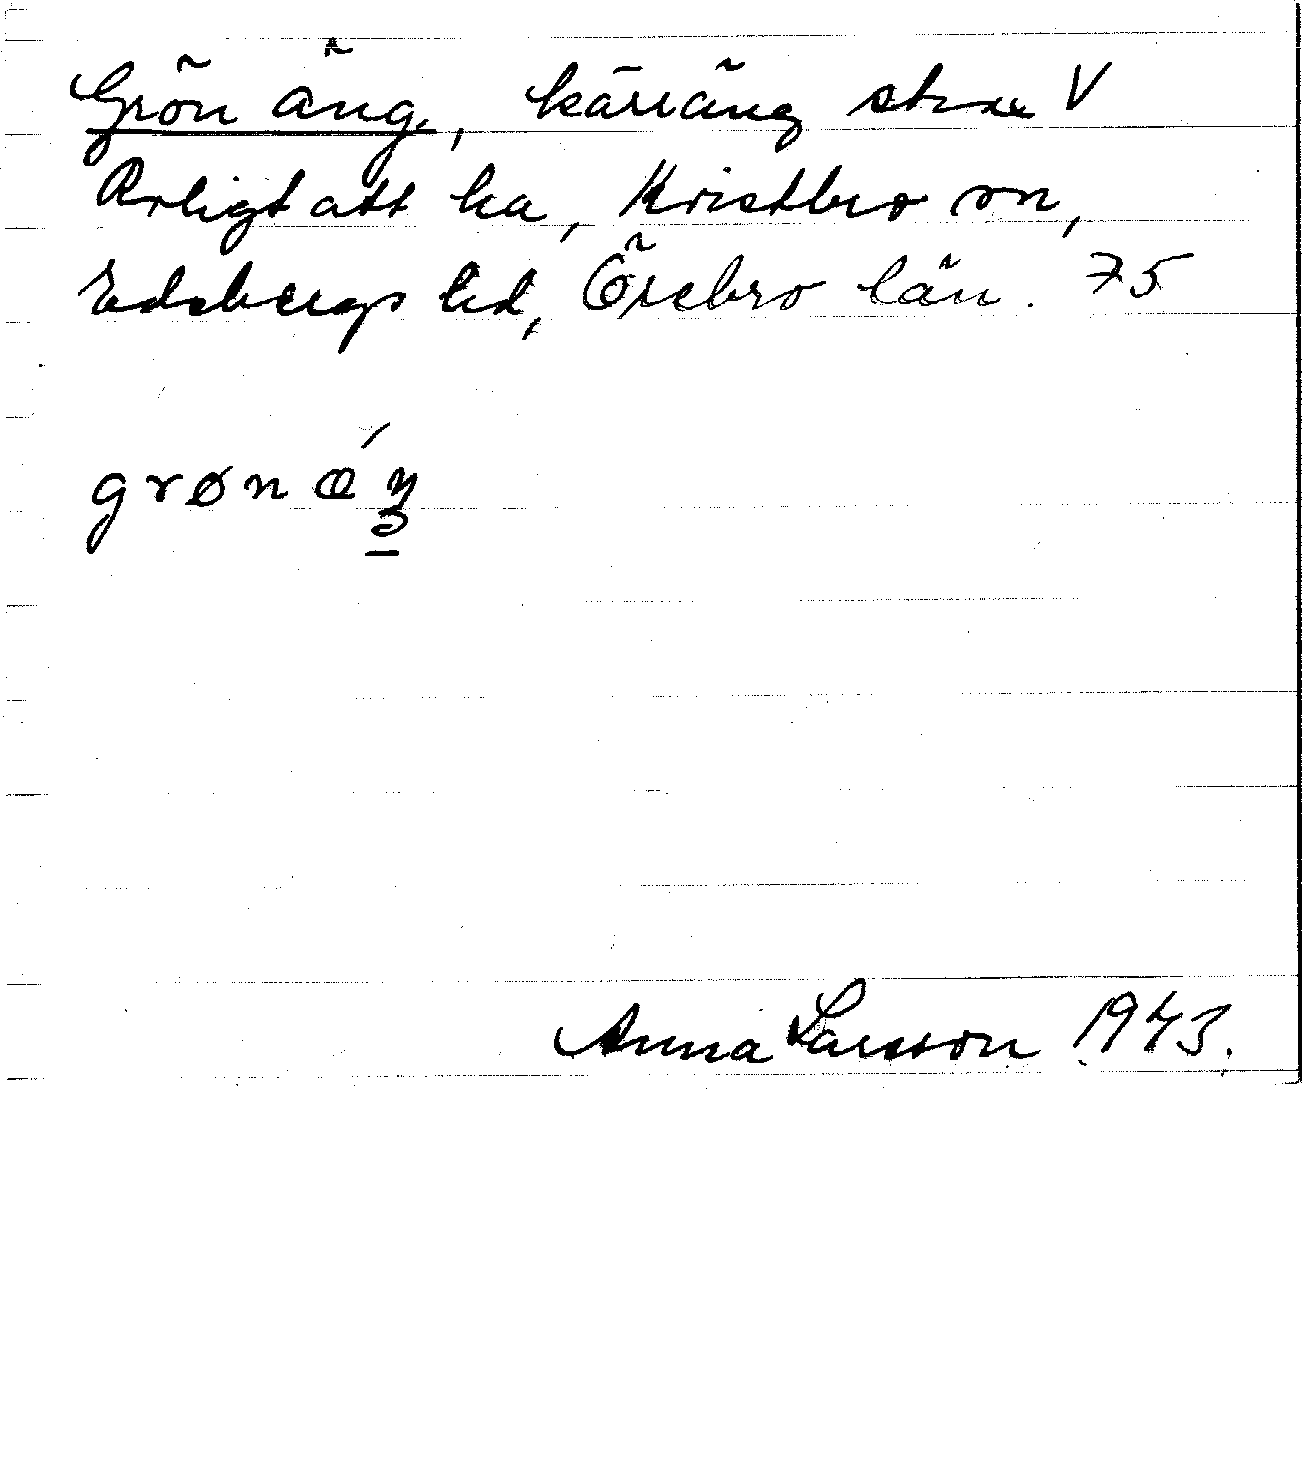 Grön äng, kärräng strax V
Roligt att ha, Kvistbro sn,
Edsbergs hd, Örebro län. 75
Anna Larsson 1943.